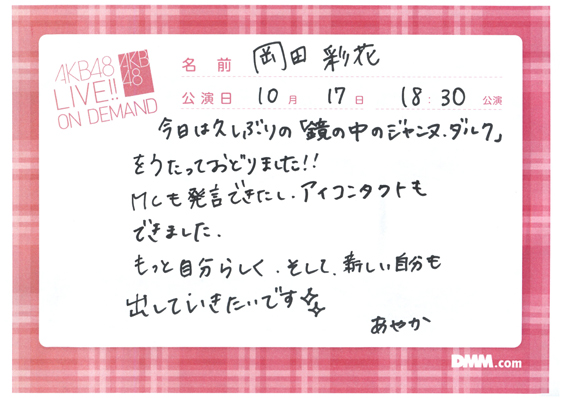 AKB48
LIVE!!
ON DEMAND
AKB
48
名前 岡田 彩花
公演日 10月 17日 18:30 公演
今日は久しぶりの「鏡の中のジャンヌ・ダルク」
をうたっておどりました!!
MCも発言できたし、アイコンタクトも
できました.
もっと自分らしく、そして、新しい自分も
出していきたいです
あやか
DMM.com